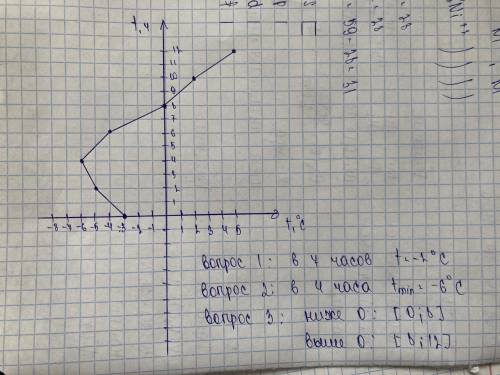 t, ч
12
11
10
9
8
7
6
5
4
3
2
1
-8 -7 -6 -5 -4 -3 -2 -1 1 2 3 4 5
t,°C
вопрос 1: в 7 часов t=-2°C
вопрос 2: в 4 часа tmin=-6°C
вопрос 3: ниже 0: [0;8]
выше 0: [8;12]
= 59-28=31